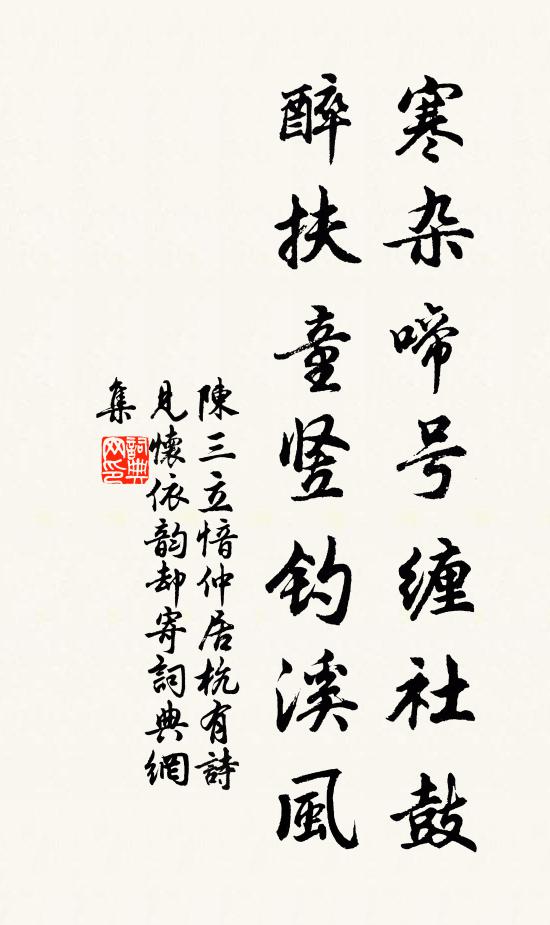 寒杂啼号缠社鼓
醉扶童竖钓溪風
陳三立愔仲居杭有詩
見懷依韵却寄詞典網
集
詞典
网印